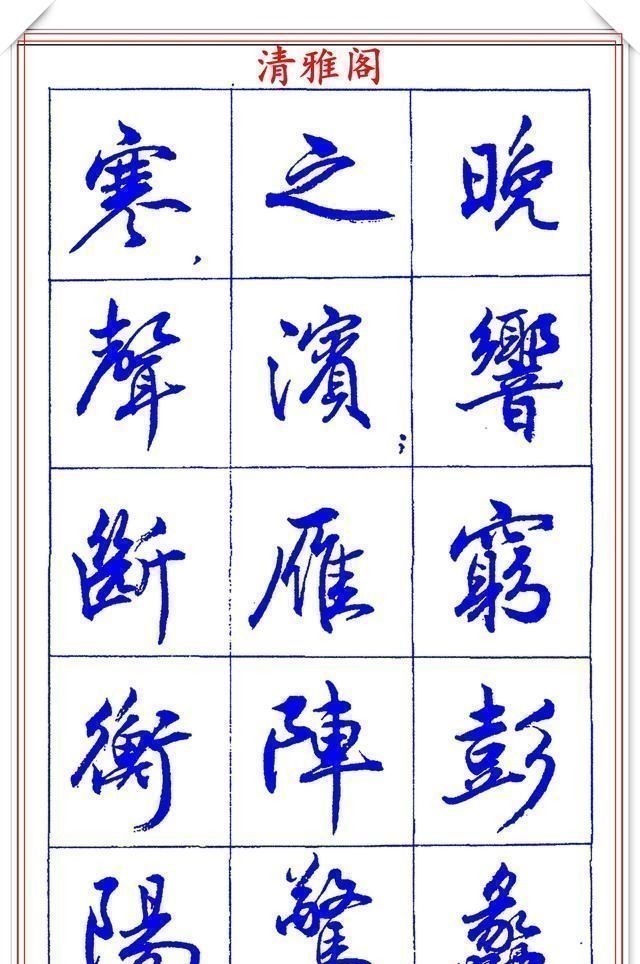 清雅阁
晚響窮彭蠡
之濱;雁陣驚
寒,聲斷衡陽